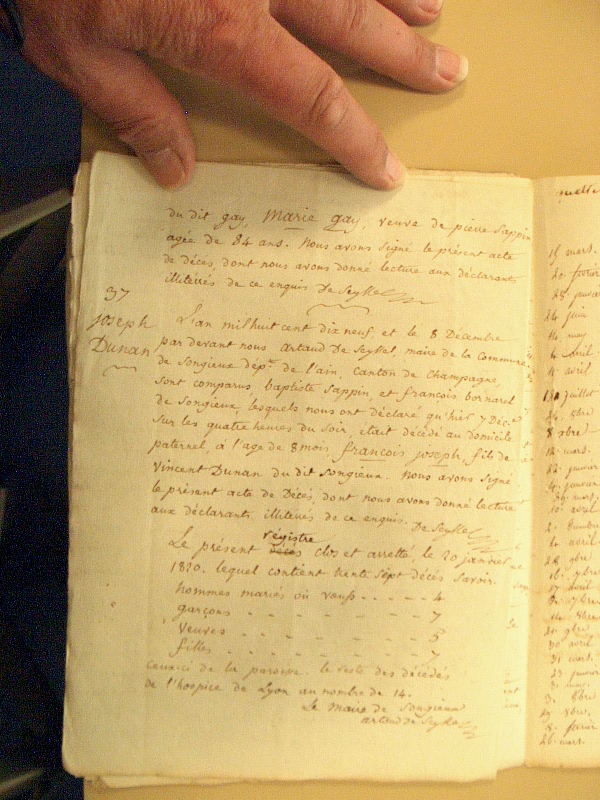 du dit gay, Marie Gay, veuve de pierre Sappin
agée de 84 ans. Nous avons signé le présent acte
de décés, dont nous avons donné lecture aux déclarants
illitérés de ce enquis DeSeyssel
37
joseph
Dunan
L'an mil huit cent dix neuf, et le 8 Décembre
par devant nous Artaud DeSeyssel, maire de la Commune
de Songieux dépt. de l'ain, canton de Champagne,
sont comparus, baptiste Sappin, et françois bornarel
de Songieux lesquels nous ont déclaré qu'hier 7 Déc.
sur les quatre heures du soir, était décédé au domicile
paternel, à l'age de 8 mois, françois joseph, fils de
Vincent Dunan du dit Songieux. Nous avons signé
le présent acte de Décés, dont nous avons donné lecture
aux déclarants illitérés de ce enquis. DeSeyssel
registre
Le présent décés clos et arretté, le 20 janvier
1820. lequel contient trente sept décés Savoir.
hommes mariés ou veufs - - - - - 4
garçons - - - - - - - 7
Veuves - - - - - - - 5
filles - - - - - - - 7
ceux-ci de la paroisse. le reste des décédés
de l'hospice de Lyon au nombre de 14.
Le Maire de Songieux
artaud de Seyssel
15 mars.
20 fevrier
25 janvier
24 juin
14 may
4 avril
avril
juillet
8bre
8 9bre
12 mars.
janvier
janvier
mars.
10 avril
4 avril
28 9bre
16 9bre
8bre
9bre
30 avril
31 mars.
23 janvier
3 8bre
29 8bre.
8 fevrier
26 mars.